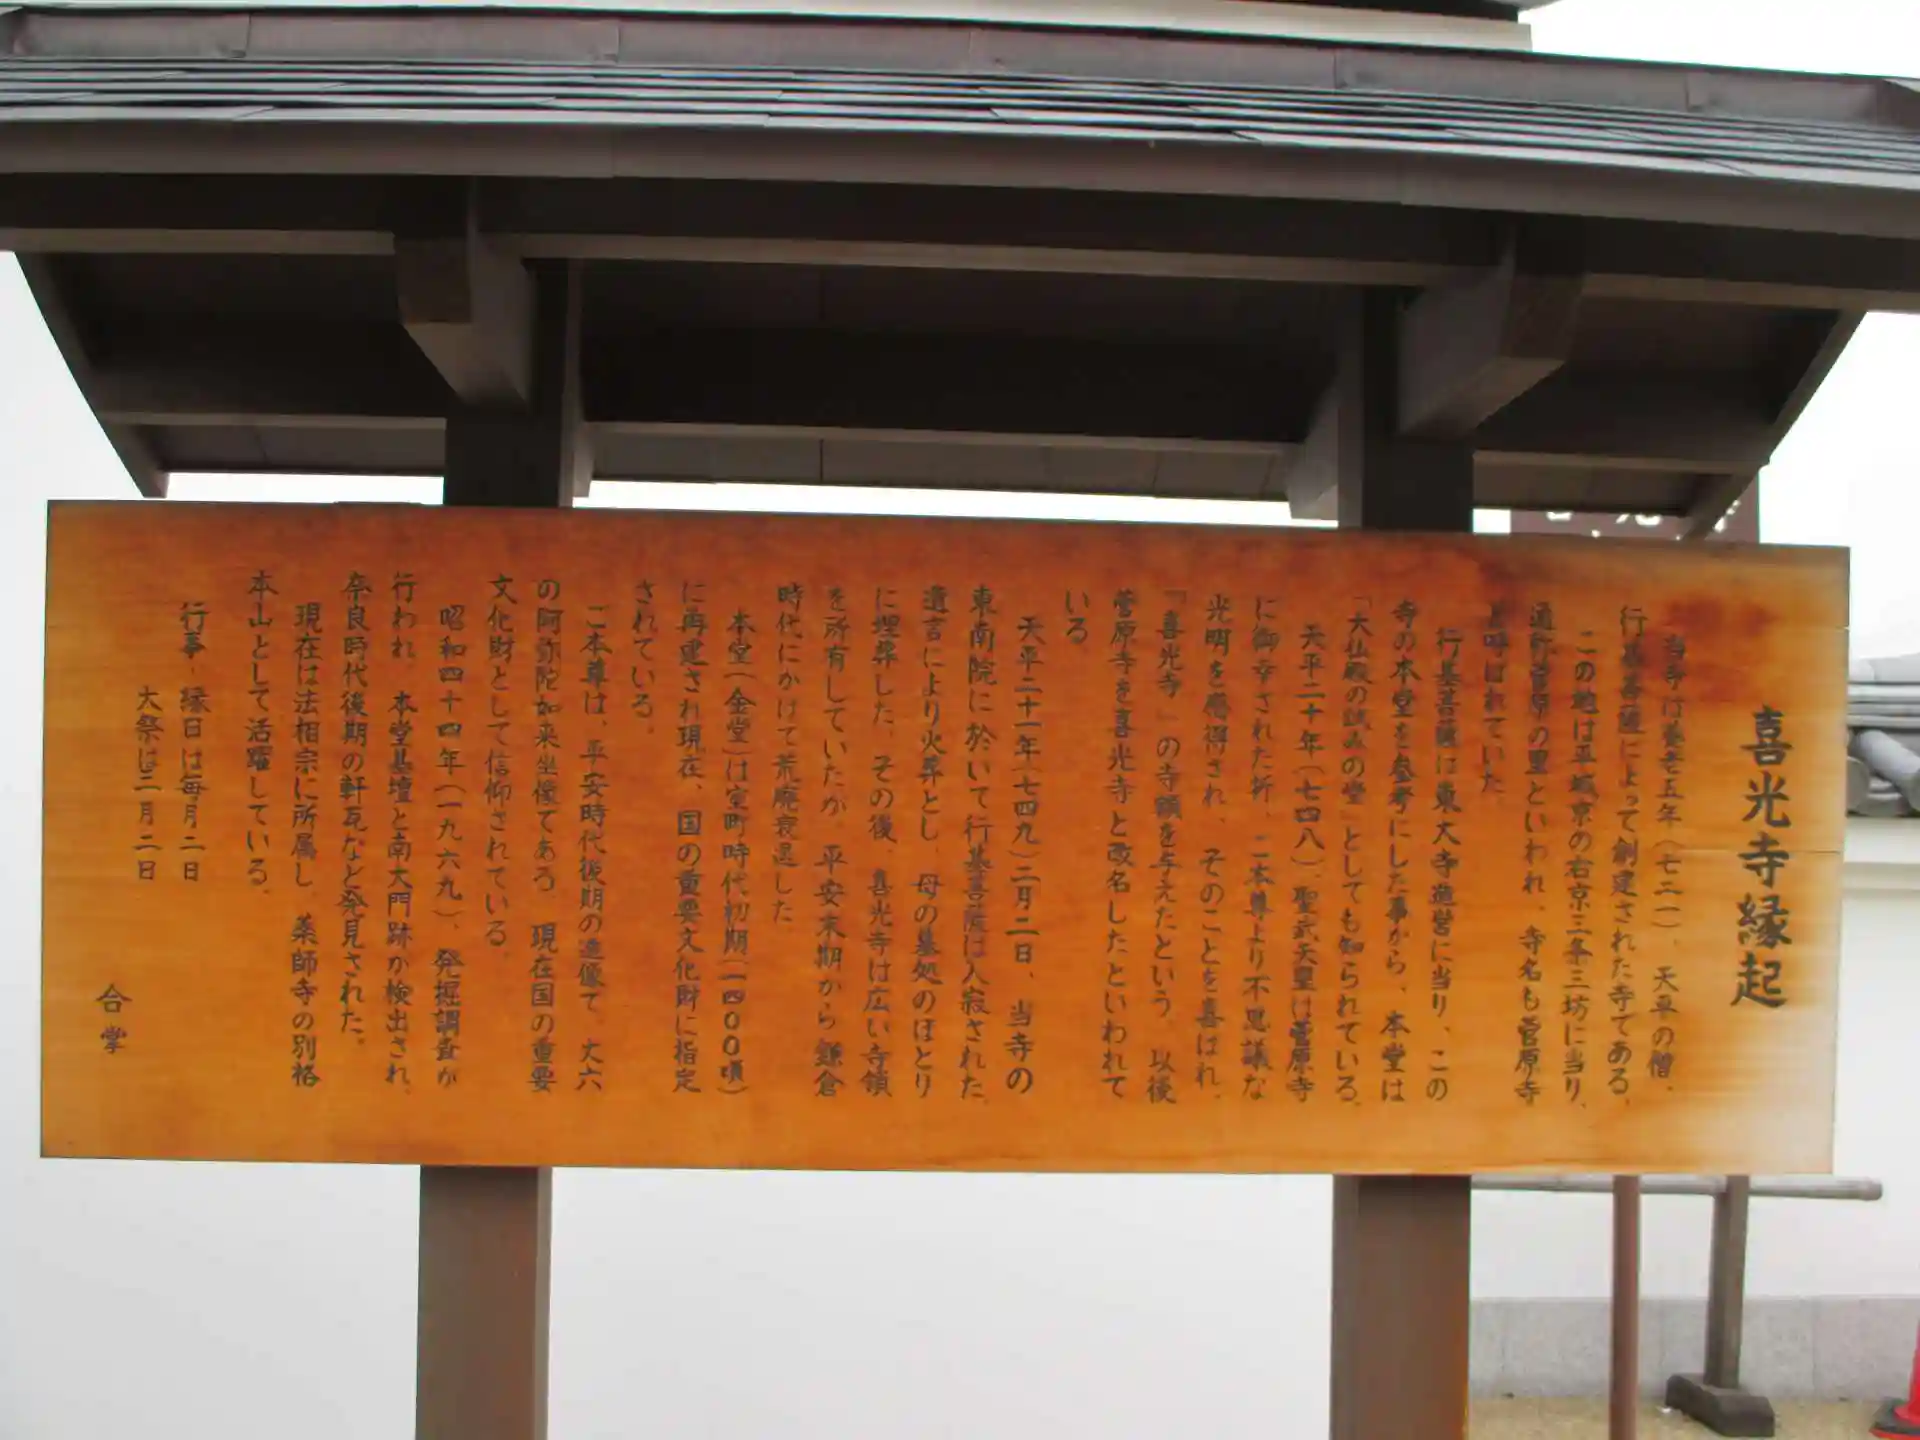 喜光寺縁起
当寺は養老五年(七二一)、天平の僧、
行基菩薩によって創建された寺である。
この地は平城京の右京三条三坊に当り、
通称菅原の里といわれ、寺名も菅原寺
と呼ばれていた。
行基菩薩は東大寺造営に当り、この
寺の本堂を参考にした事から、本堂は
「大仏殿の試みの堂」としても知られている。
天平二十年(七四八)、聖武天皇は菅原寺
に御幸された折、ご本尊より不思議な
光明を感得され、そのことを喜ばれ、
「喜光寺」の寺額を与えたという。以後
菅原寺を喜光寺と改名したといわれて
いる
天平二十一年(七四九)二月二日、当寺の
東南院に於いて行基菩薩は入寂された。
遺言により火葬とし、母の墓処のほとり
に埋葬した。その後、喜光寺は広い寺領
を所有していたが、平安末期から鎌倉
時代にかけて荒廃衰退した
本堂(金堂)は室町時代初期(一四〇〇頃)
に再建され現在、国の重要文化財に指定
されている。
ご本尊は、平安時代後期の造像で、丈六
の阿弥陀如来坐像である。現在国の重要
文化財として信仰されている。
昭和四十四年(一九六九)、発掘調査が
行われ、本堂基壇と南大門跡が検出され、
奈良時代後期の軒瓦など発見された。
現在は法相宗に所属し、薬師寺の別格
本山として活躍している。
行事・縁日は毎月二日
大祭は三月二日
合掌